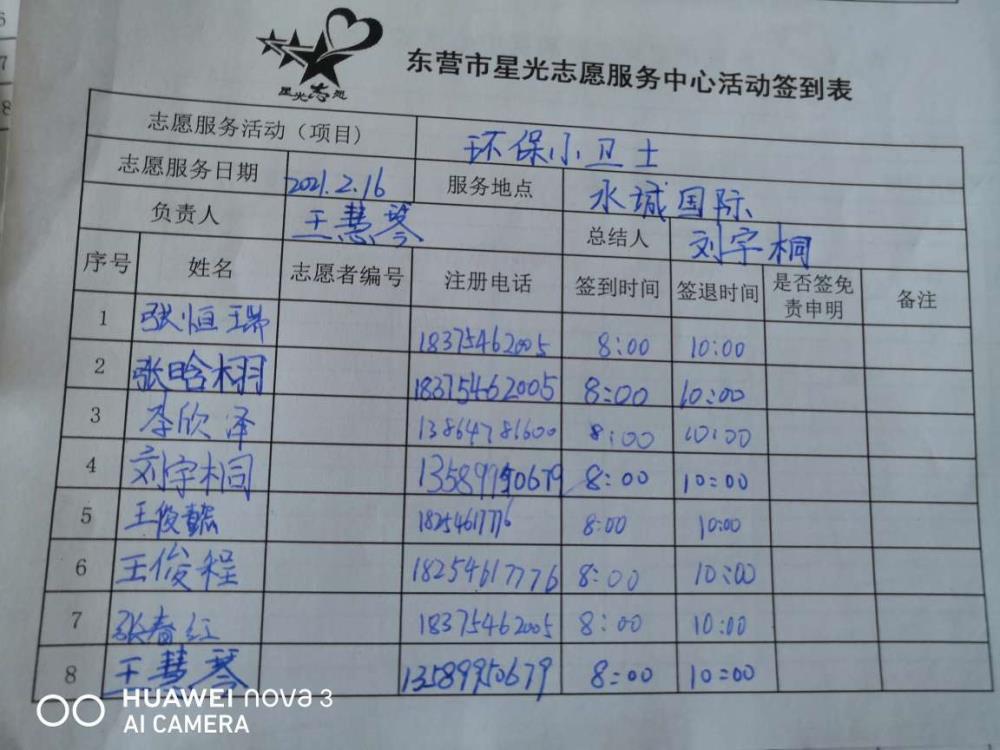 星光志愿
东营市星光志愿服务中心活动签到表
志愿服务活动（项目） 环保小卫士
志愿服务日期 2021.2.16 服务地点 水城国际
负责人 王慧琴 总结人 刘宇桐
序号 姓名 志愿者编号 注册电话 签到时间 签退时间 是否签免责申明 备注
1 张恒瑞 18375462005 8:00 10:00
2 张晗栩 18375462005 8:00 10:00
3 李欣泽 13864781600 8:00 10:00
4 刘宇桐 13589950679 8:00 10:00
5 王俊懿 1825461776 8:00 10:00
6 王俊程 18254617776 8:00 10:00
7 张春红 18375462005 8:00 10:00
8 王慧琴 13589950679 8:00 10:00
HUAWEI nova 3
AI CAMERA
6
7
8